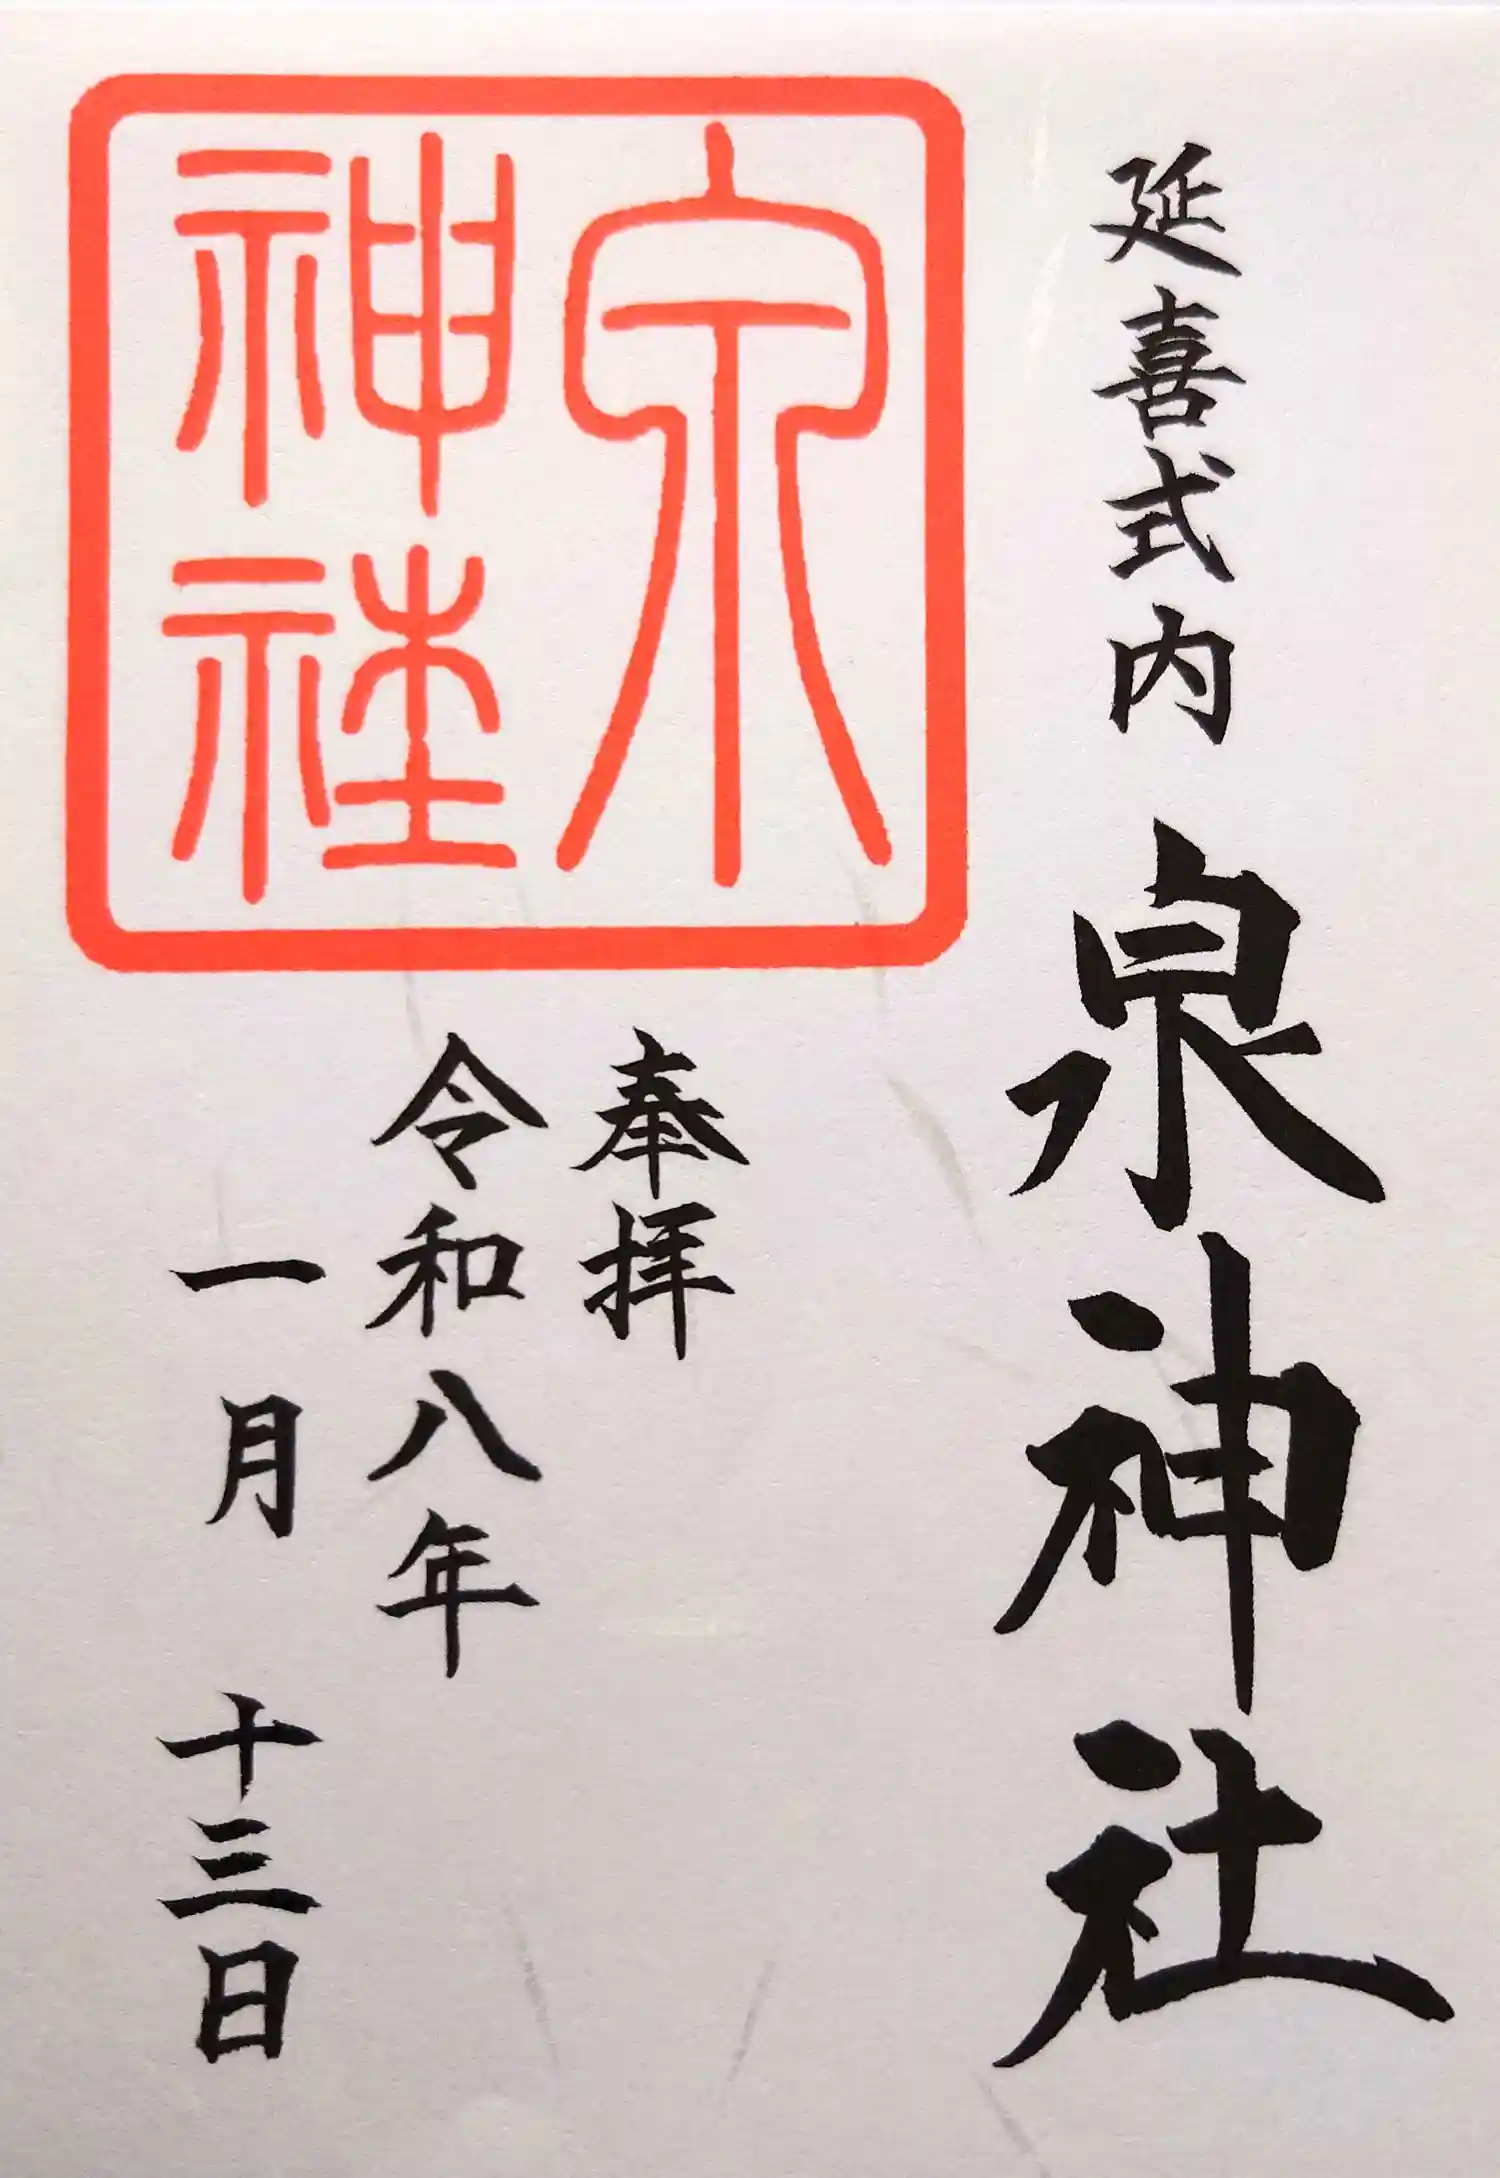 延喜式内 泉神社
泉
神社
奉拝
令和八年
一月 十三日